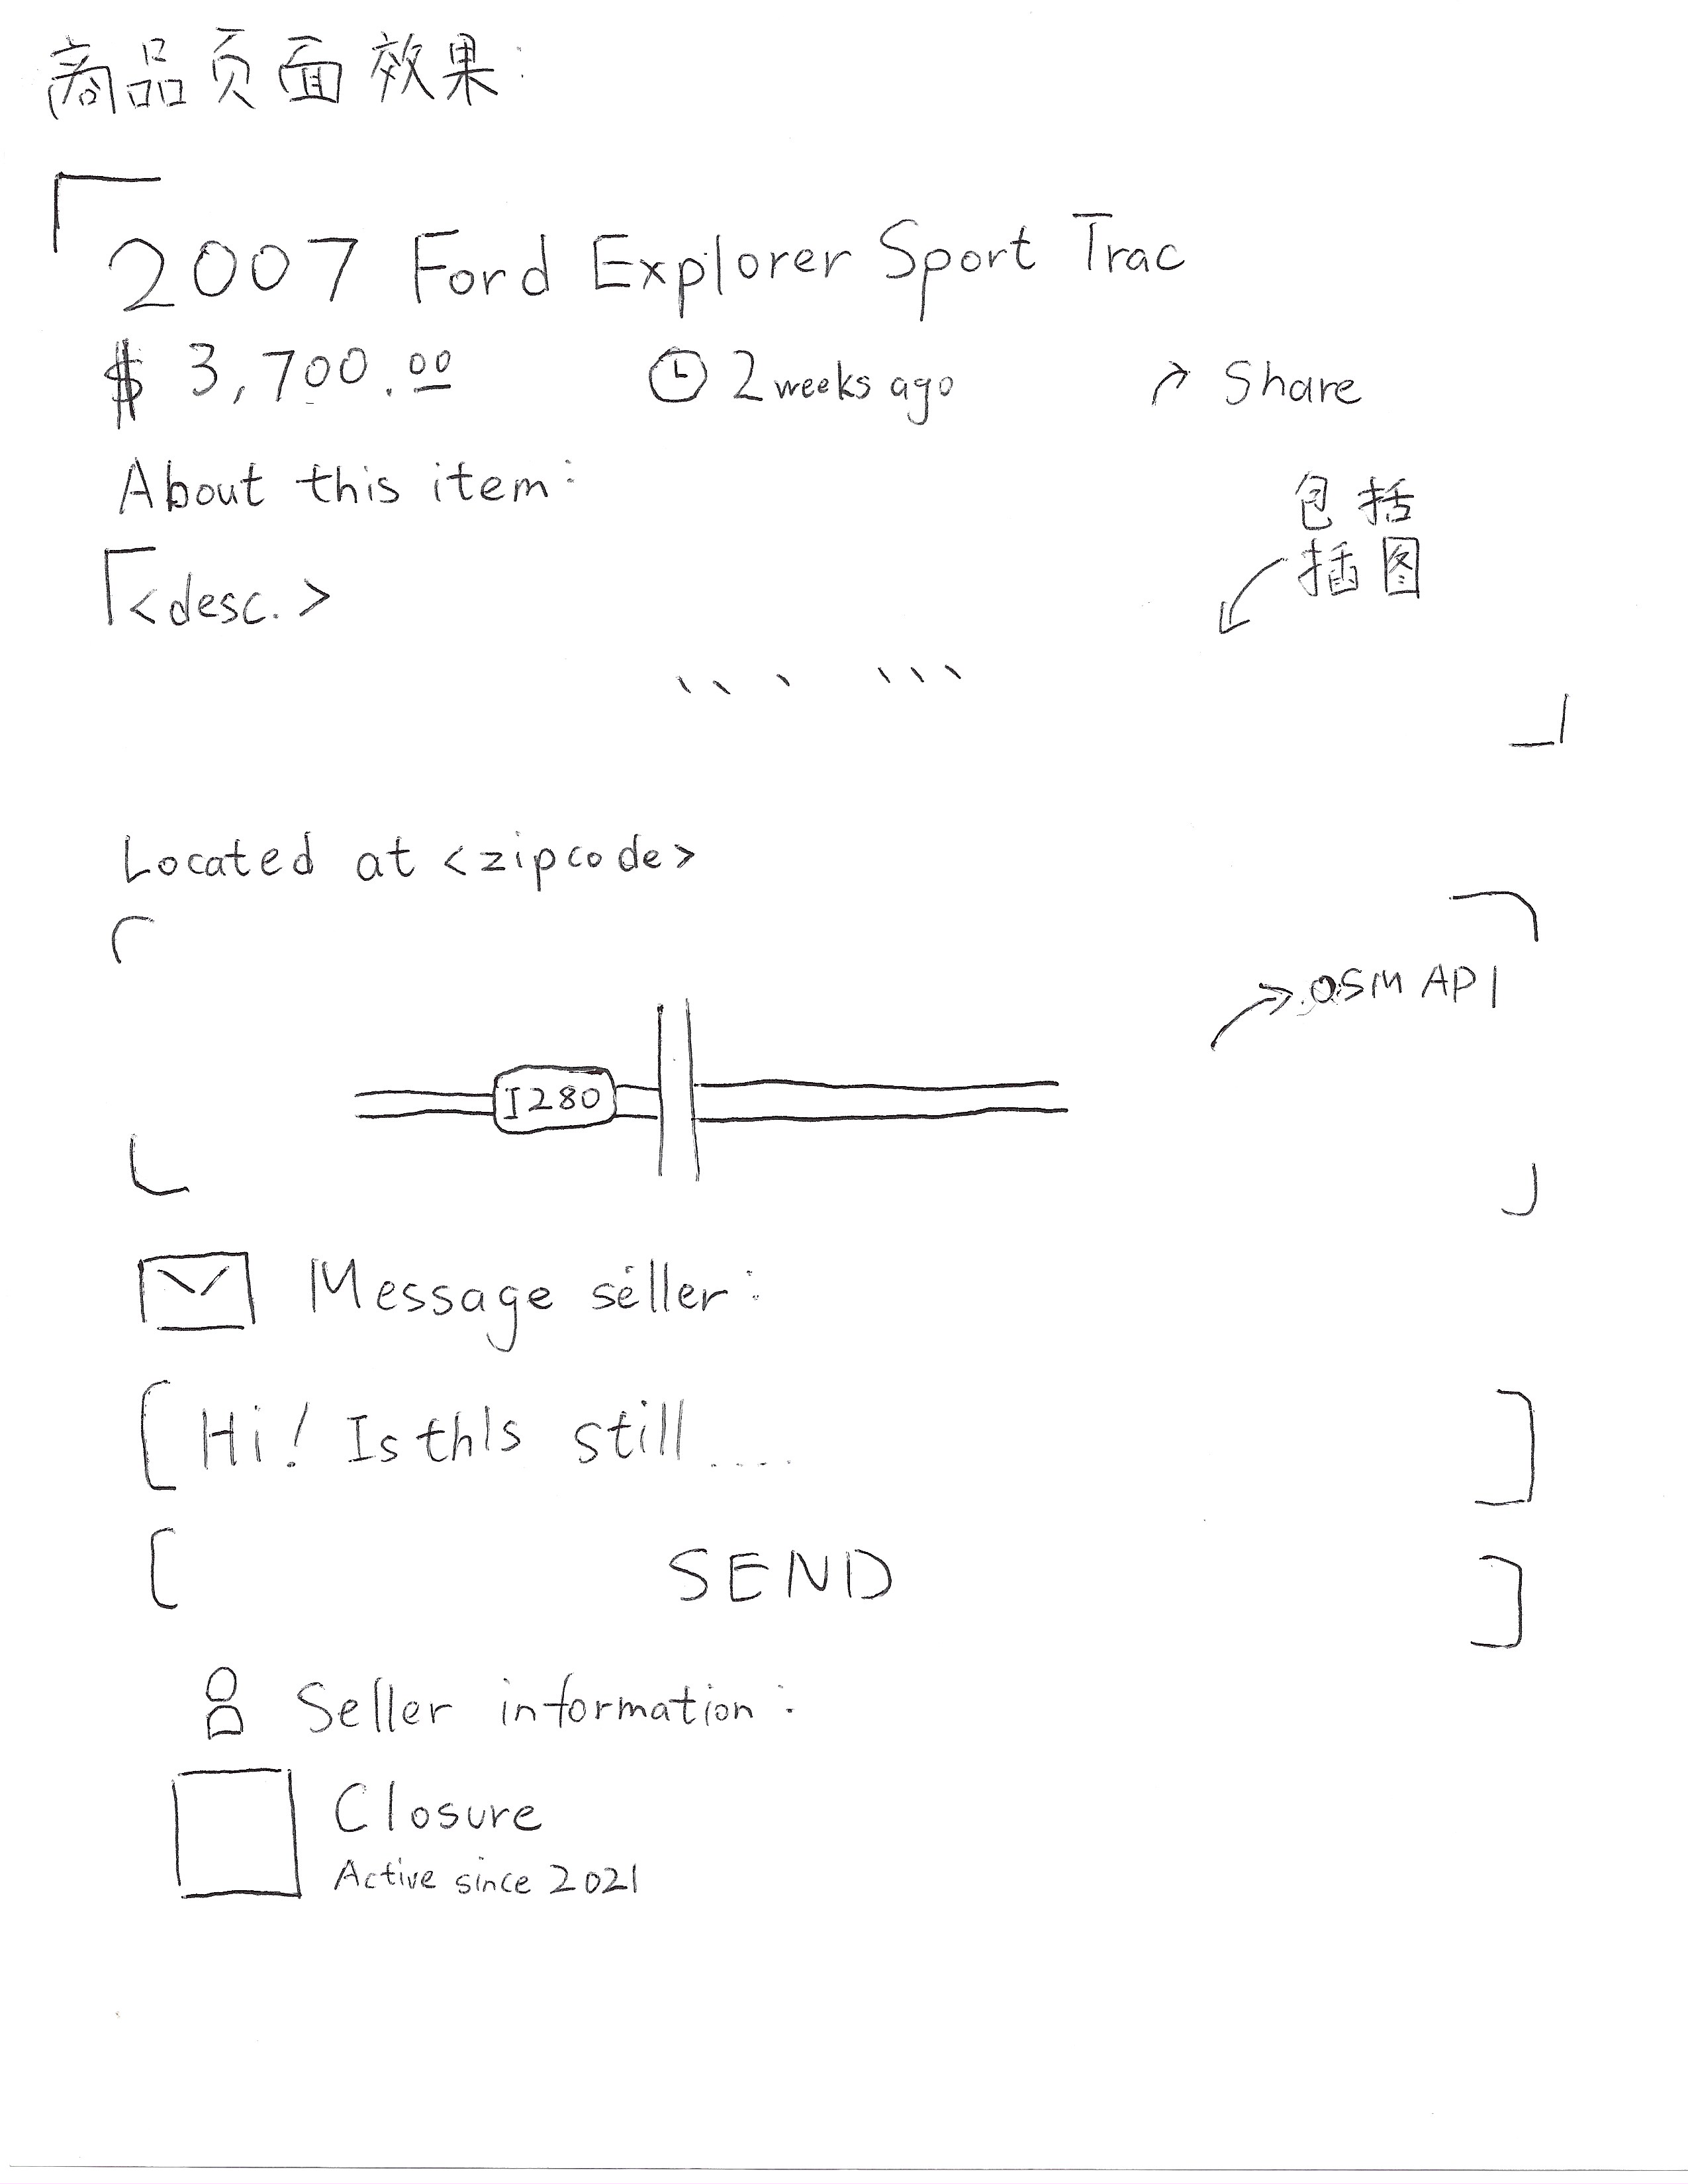 商品页面效果:
2007 Ford Explorer Sport Trac
$ 3,700.00
2 weeks ago
Share
About this item:
包括
插图
<desc.>
Located at <zipcode>
OSM API
I280
Message seller:
Hi! Is this still ....
SEND
Seller information:
Closure
Active since 2021